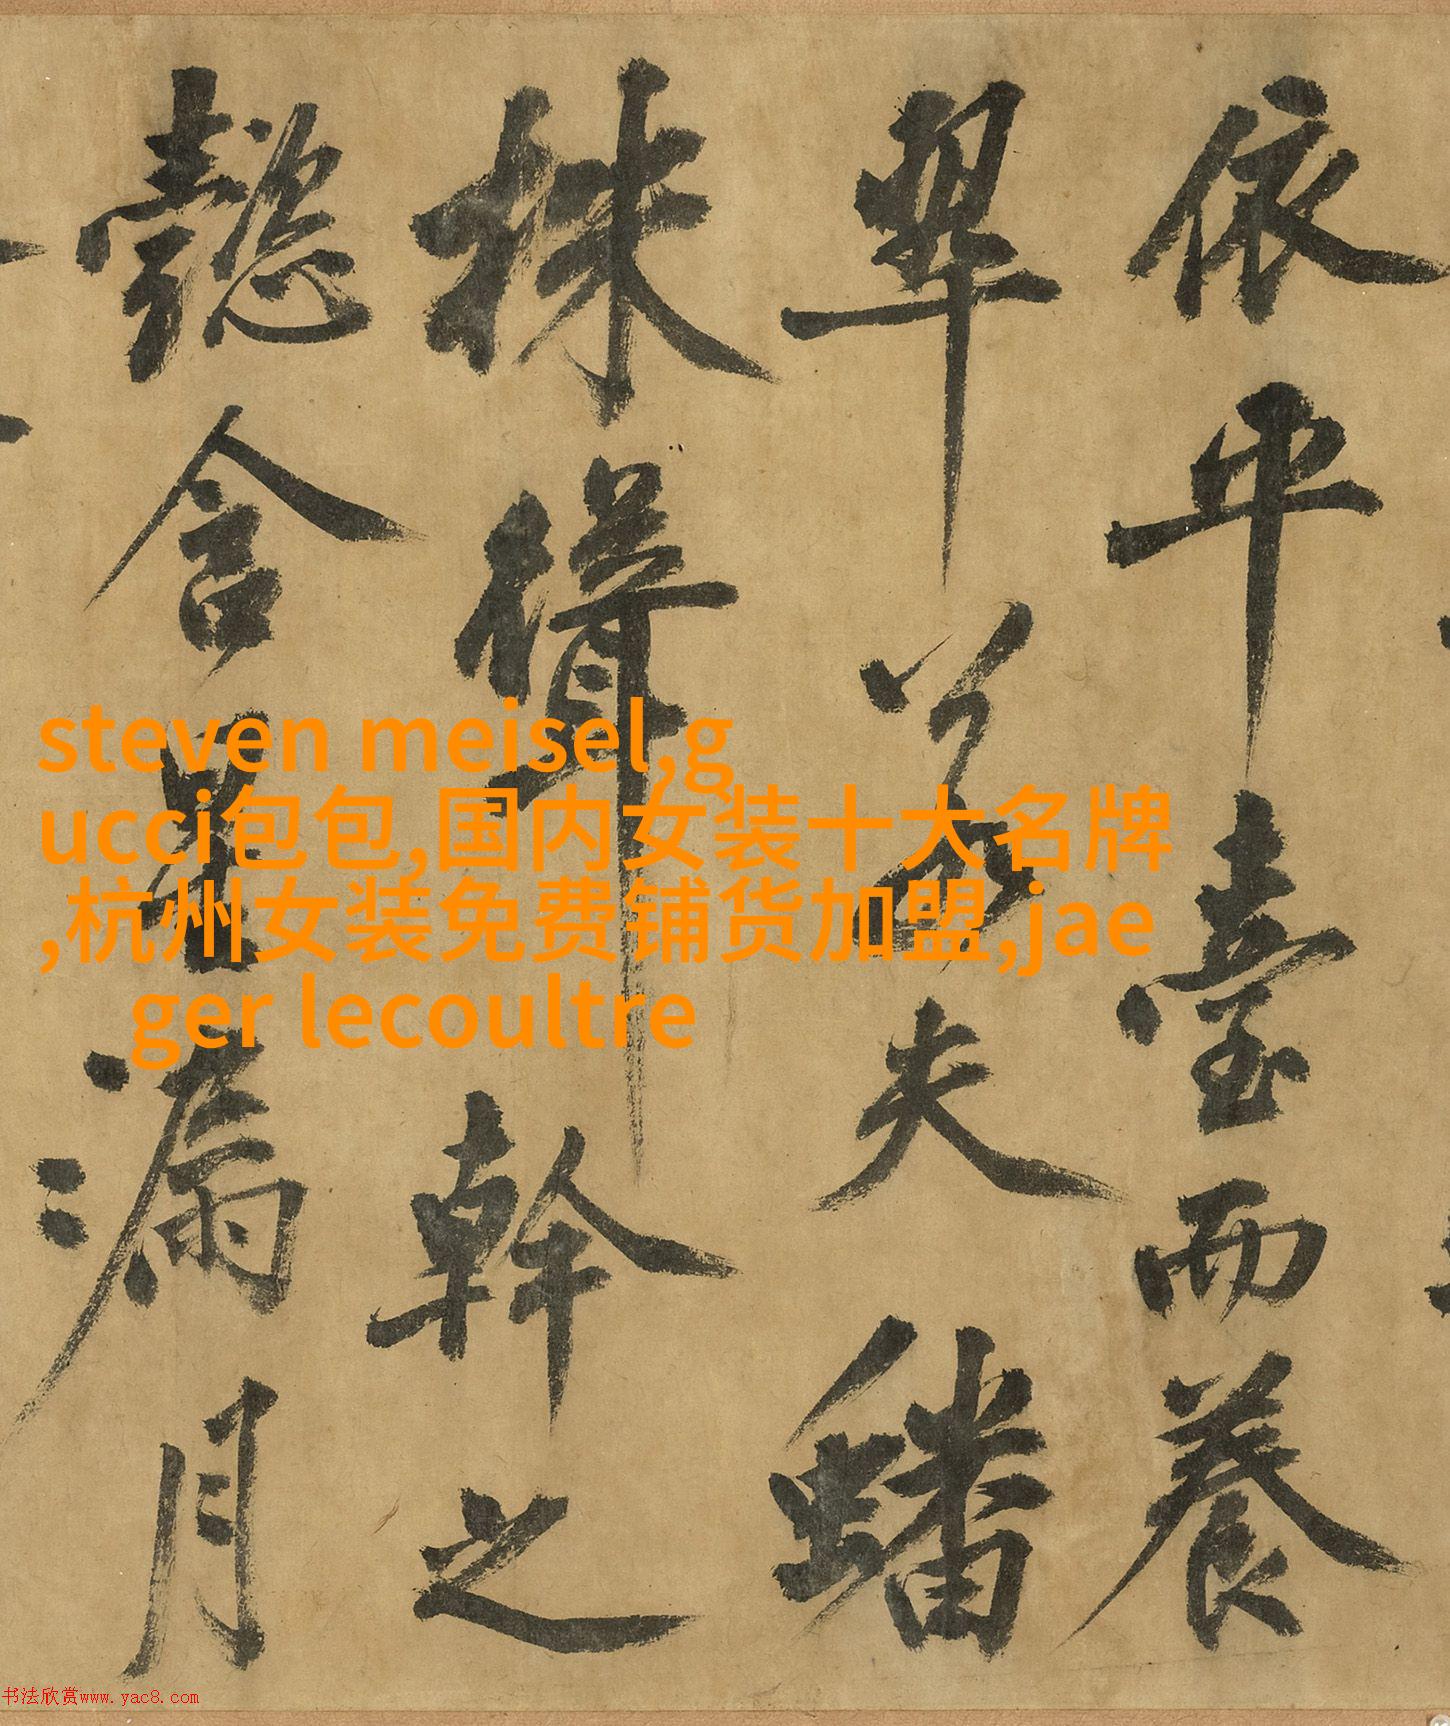 依平臺而養
翠若夫蟠
株聳幹之
懿含星漏月
steven meisel,g
ucci包包,国内女装十大名牌
,杭州女装免费铺货加盟,jae
ger lecoultre
书法欣赏www.yac8.com